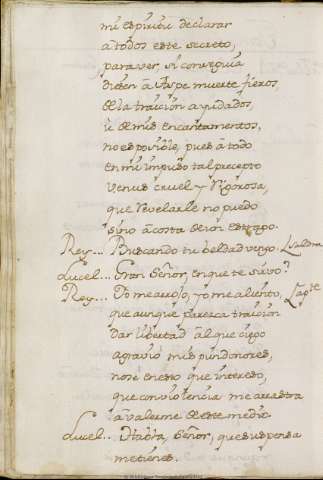 mi espiritu declarar
a todos este secreto,
para ver, si conseguia
diesen à Jaspe muerte fieros,
de la traicion ayudados,
ù de mis encantamentos,
no es posible, pues à todo
en mi impuso tal precepto
Venus cruel y Rigorosa,
que Revelarle no puedo
sino à costa de
Rey... Buscando tu beldad vengo.
Lucel... Gran Señor, en que te sirvo?
Rey... Yo me arrojo, yo me aliento,
que aunque parezca traicion
dar libertad àl que ciego
agraviò mis pundonores,
no sè en esto que intereso,
que con violencia me arrastra
à valerme de este medio.
Lucel.. Habla, Señor, que suspensa
me tienes.